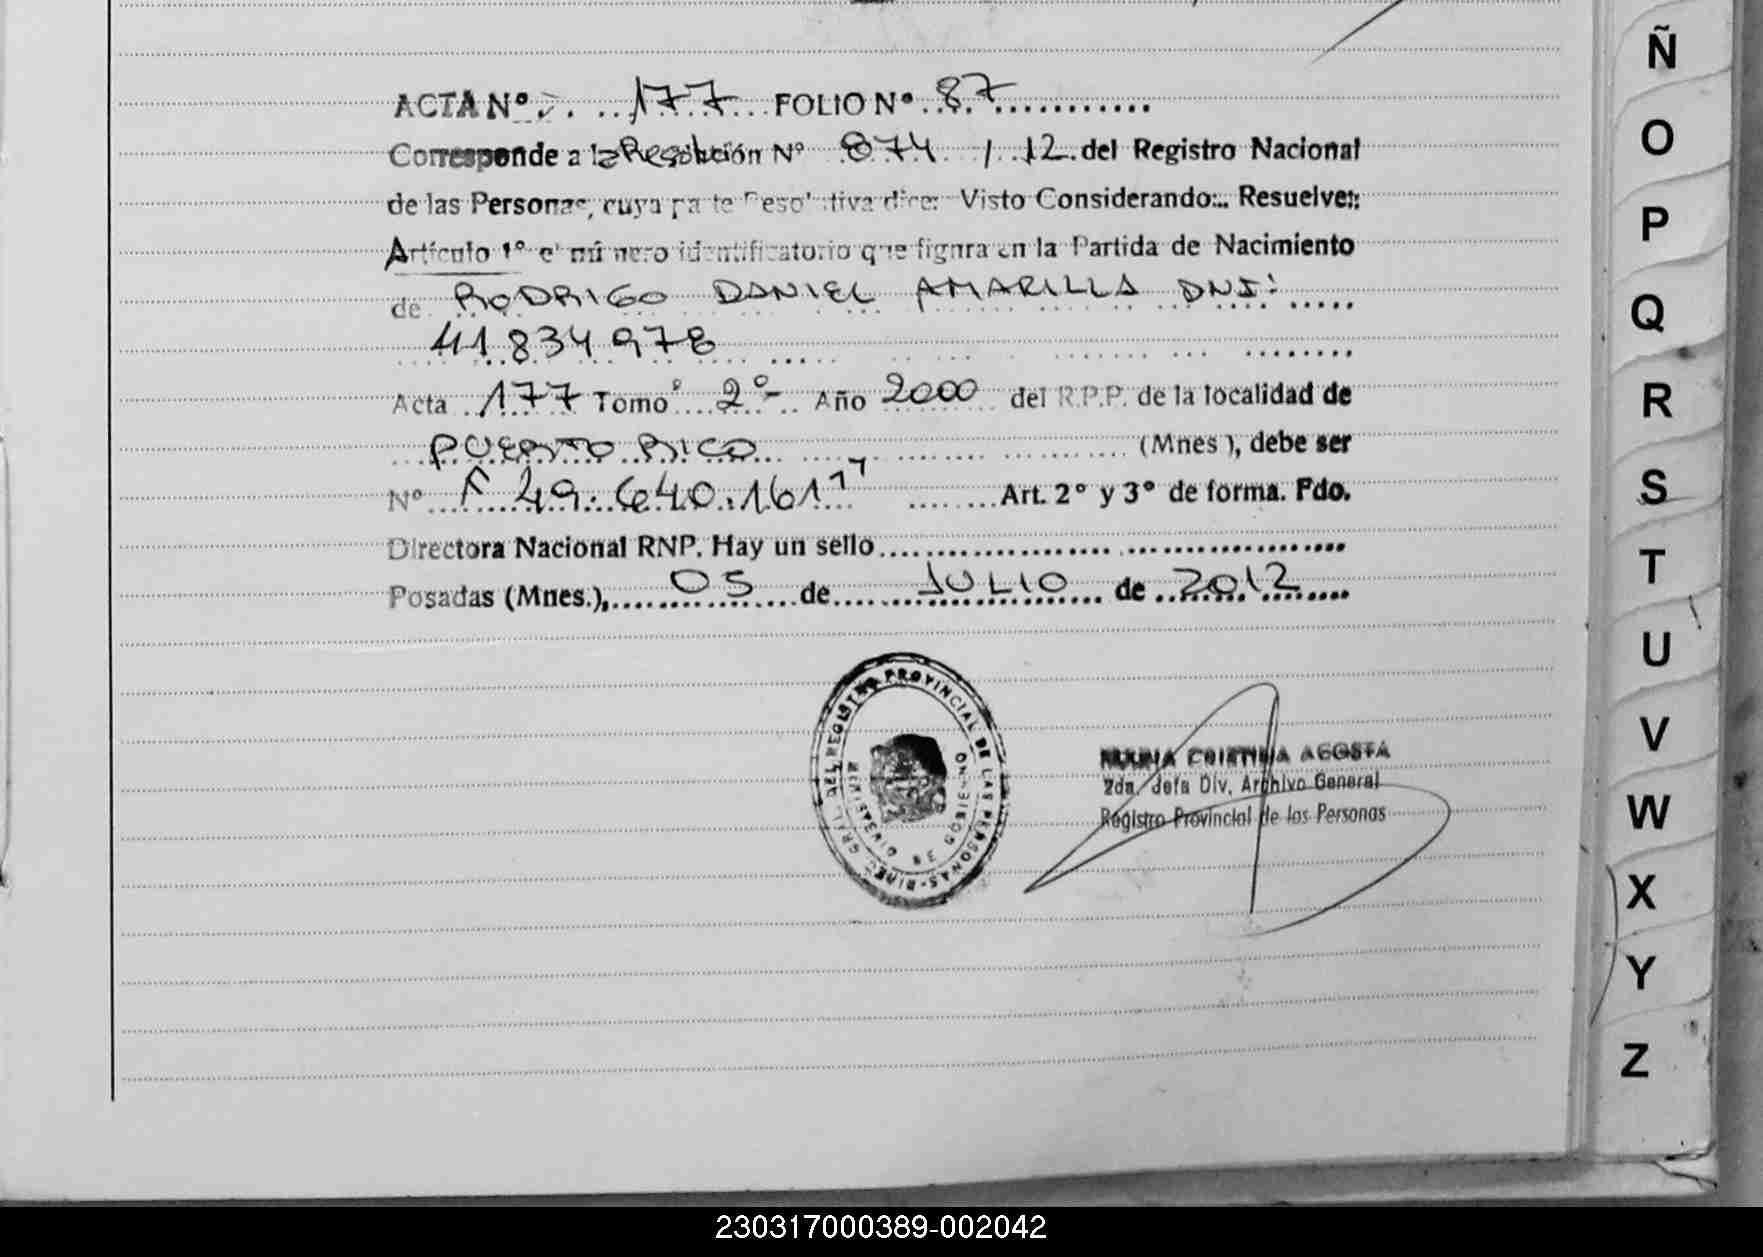 ACTA Nº 177 FOLIO Nº 87
Corresponde a la Resolución Nº 874 / 12 del Registro Nacional
de las Personas, cuya parte resolutiva dice: Visto Considerando:.. Resuelve:
Artículo 1º el número identificatorio que figura en la Partida de Nacimiento
de RODRIGO DANIEL AMARILLA DNI:
41.834.978
Acta 177 Tomo 2º Año 2000 del R.P.P. de la localidad de
PUERTO RICO (Mnes), debe ser
Nº 49.640.161 Art. 2º y 3º de forma. Fdo.
Directora Nacional RNP. Hay un sello
Posadas (Mnes.), 05 de JULIO de 2012
DIREC. GRAL. DEL REGISTRO PROVINCIAL DE LAS PERSONAS
MINISTERIO DE GOBIERNO
MARIA CRISTINA ACOSTA
2da. Jefa Div. Archivo General
Registro Provincial de las Personas
Ñ
O
P
Q
R
S
T
U
V
W
X
Y
Z
230317000389-002042